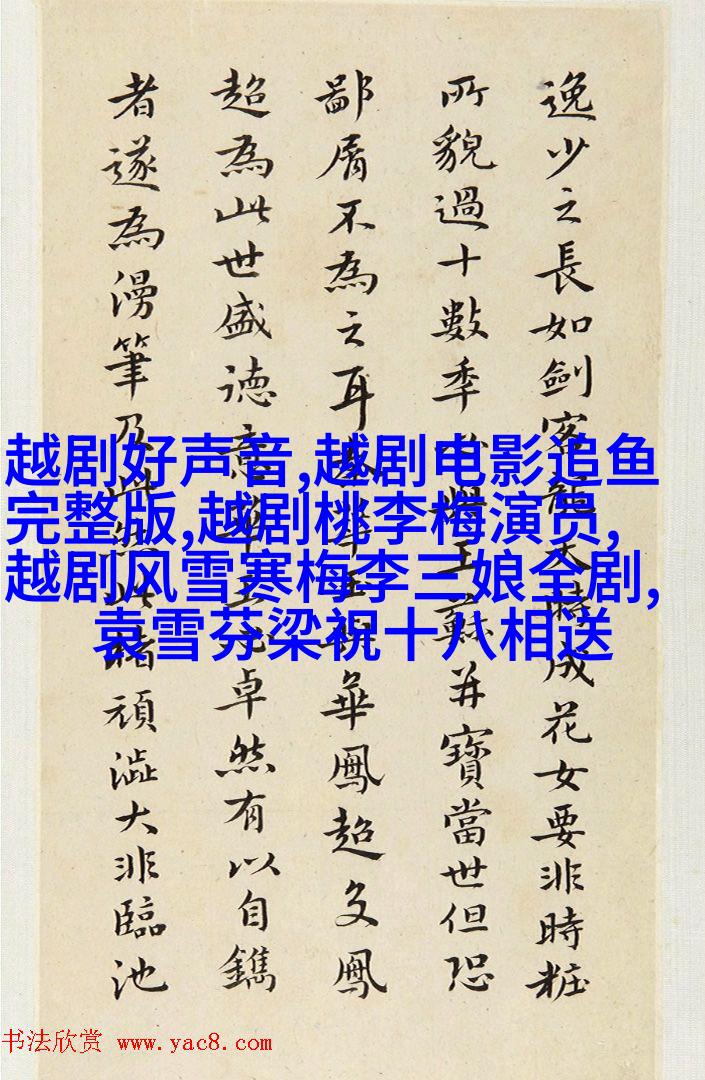 逸少之長如劍客時成花女要非時粧
所貌過十數季與王蘇并寶當世但恐
鄙屑不為之耳華鳳超文鳳
超為此世盛德意卓然有以自鐫
者遂為漫筆乃此然此楮頑澁大非臨池
越剧好声音,越剧电影追鱼
完整版,越剧桃李梅演员,
越剧风雪寒梅李三娘全剧,
袁雪芬梁祝十八相送
书法欣赏 www.yac8.com